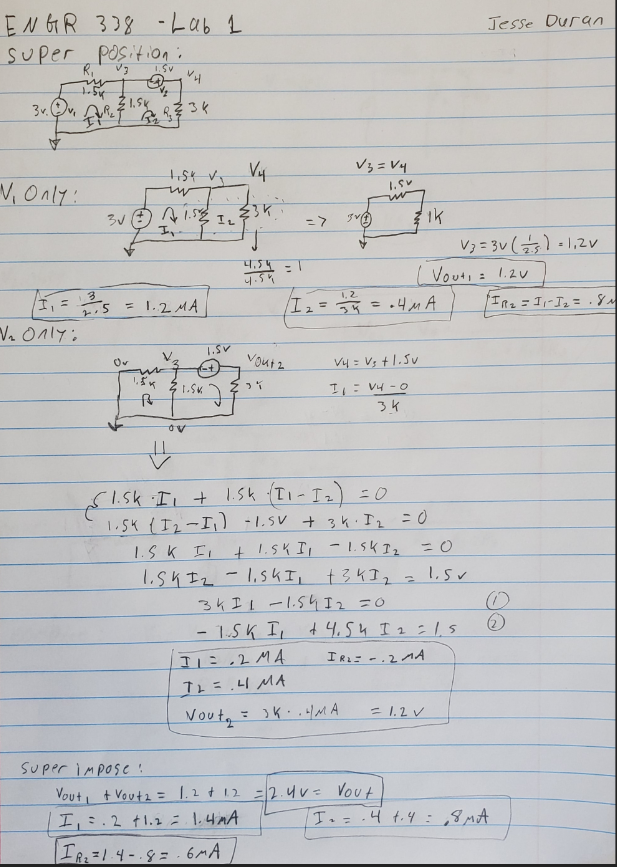 ENGR 338 - Lab 1
Jesse Duran
Super position:
R1 V3 1.5v V4
1.5k V2
3v V1 I1 R2 1.5k I2 R3 3k
V1 Only:
1.5k V3 V4
3v I1 1.5k I2 3k
=>
V3 = V4
1.5v
3v 1k
4.5k/4.5k = 1
V3 = 3v (1/2.5) = 1.2v
Vout1 = 1.2v
I1 = 3/2.5 = 1.2 MA
I2 = 1.2/3k = .4 MA
IR2 = I1 - I2 = .8 M
V2 Only:
0v V3 1.5v Vout2
1.5k 1.5k 3k
0v
V4 = V3 + 1.5v
I1 = V4 - 0 / 3k
1.5k · I1 + 1.5k · (I1 - I2) = 0
1.5k (I2 - I1) - 1.5v + 3k · I2 = 0
1.5k I1 + 1.5k I1 - 1.5k I2 = 0
1.5k I2 - 1.5k I1 + 3k I2 = 1.5v
3k I1 - 1.5k I2 = 0 ①
- 1.5k I1 + 4.5k I2 = 1.5 ②
I1 = .2 MA IR2 = -.2 MA
I2 = .4 MA
Vout2 = 3k · .4 MA = 1.2v
Super impose:
Vout1 + Vout2 = 1.2 + 1.2 = 2.4v = Vout
I1 = .2 + 1.2 = 1.4 mA
I2 = .4 + .4 = .8 mA
IR2 = 1.4 - .8 = .6 mA